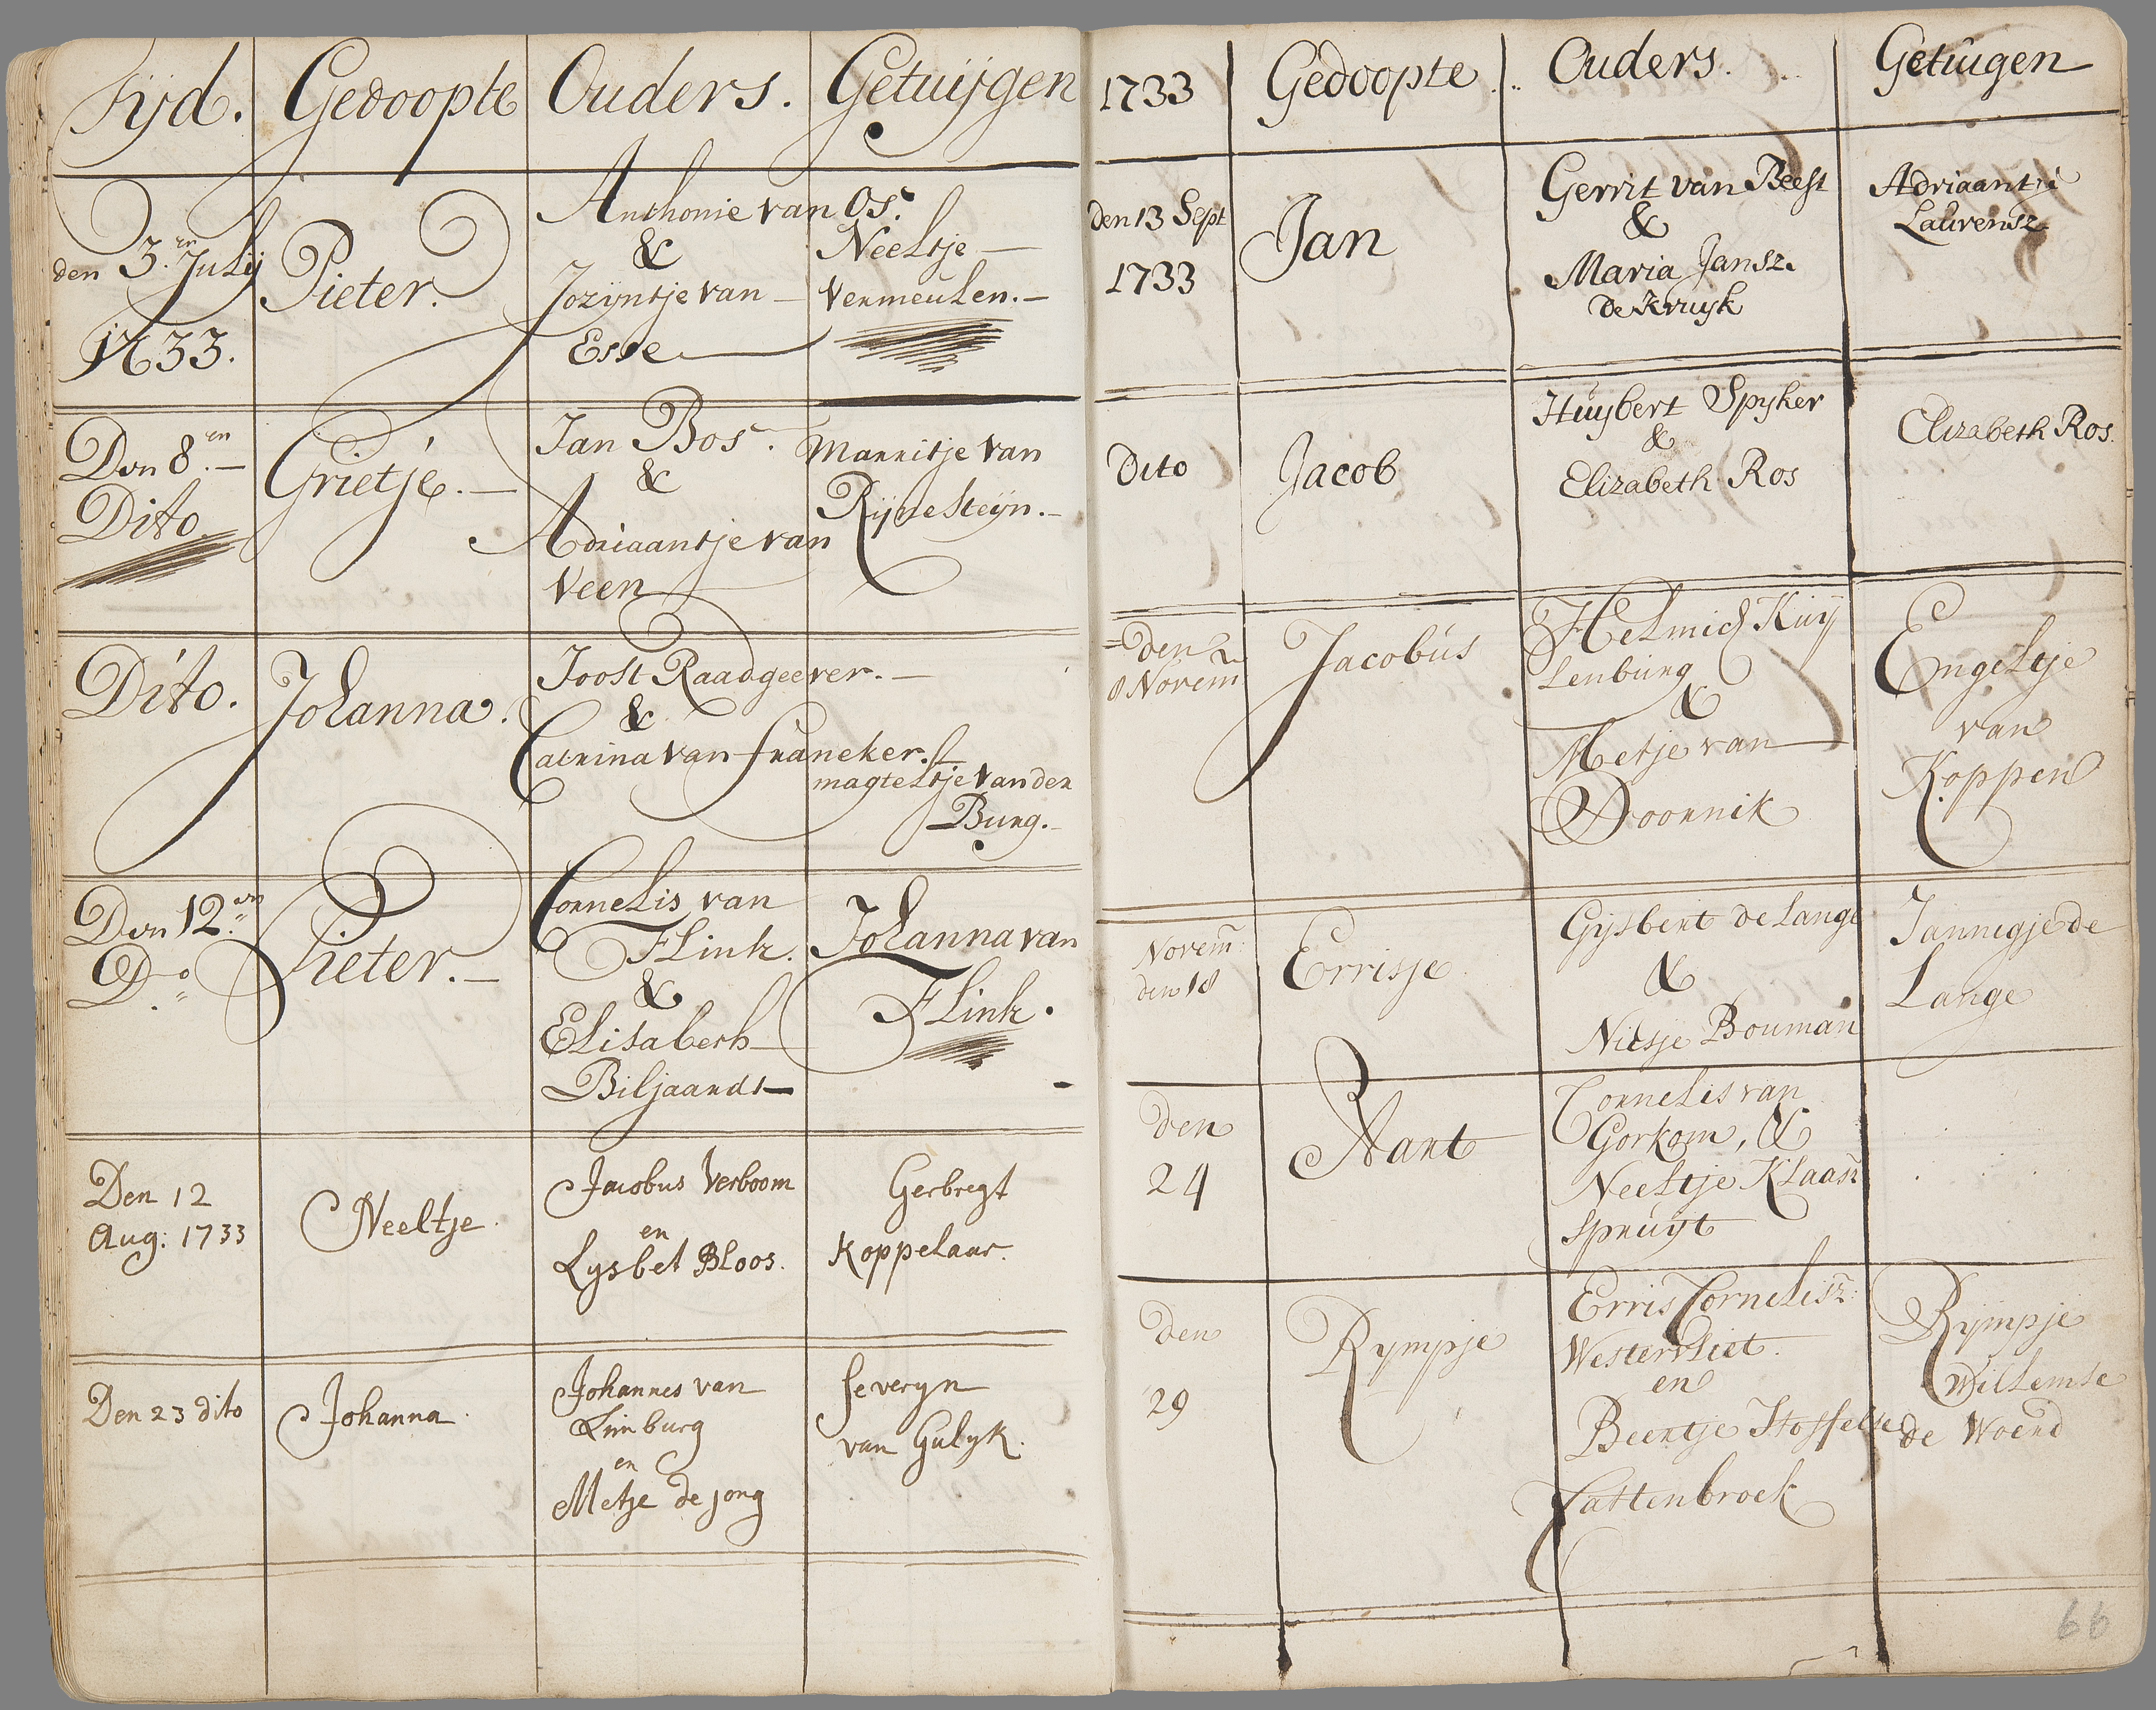 Tijd. Gedoopte Ouders. Getuijgen
den 3.en Julij
1733.
Pieter.
Anthonie van Os.
&
Jozijntje van
Esse
Neeltje
Vermeulen.
Den 8.en
Dito
Grietje.
Jan Bos.
&
Adriaantje van
Veen
Marritje van
Rijnesteijn.
Dito.
Johanna.
Joost Raadgeever.
&
Catrina van franeker.
magteltje van der
Burg.
Den 12.en
Do
Pieter.
Cornelis van
Flink.
&
Elisabeth
Biljaardt
Johanna van
Flink.
Den 12
Aug: 1733
Neeltje.
Jacobus Verboom
en
Lysbet Bloos.
Gerbregt
Koppelaar.
Den 23 dito
Johanna.
Johannes van
Limburg
en
Metje de jong
severyn
van Gulyk.
1733 Gedoopte Ouders. Getuigen
den 13 Sept
1733
Jan
Gerrit van Beest
&
Maria Jansz.
de Kruyk
Adriaantje
Laurensz
Dito
Jacob
Huijbert Spyker
&
Elizabeth Ros
Elizabeth Ros.
den
8 Novem
Jacobus
Helmich Kuij
lenburg
&
Metje van
Doornik
Engeltje
van
Koppen
Novem
den 18
Errisje
Gijsbert de Lange
&
Niesje Bouman
Jannigje de
Lange
den
24
Aart
Cornelis van
Gorkom, &
Neeltje Klaasz
spruijt
den
29
Rympje
Erris Cornelisz:
Westervliet.
en
Beentje Stoffelse
Vattenbroek
Rijmpje
Willemse
de Woerd
66